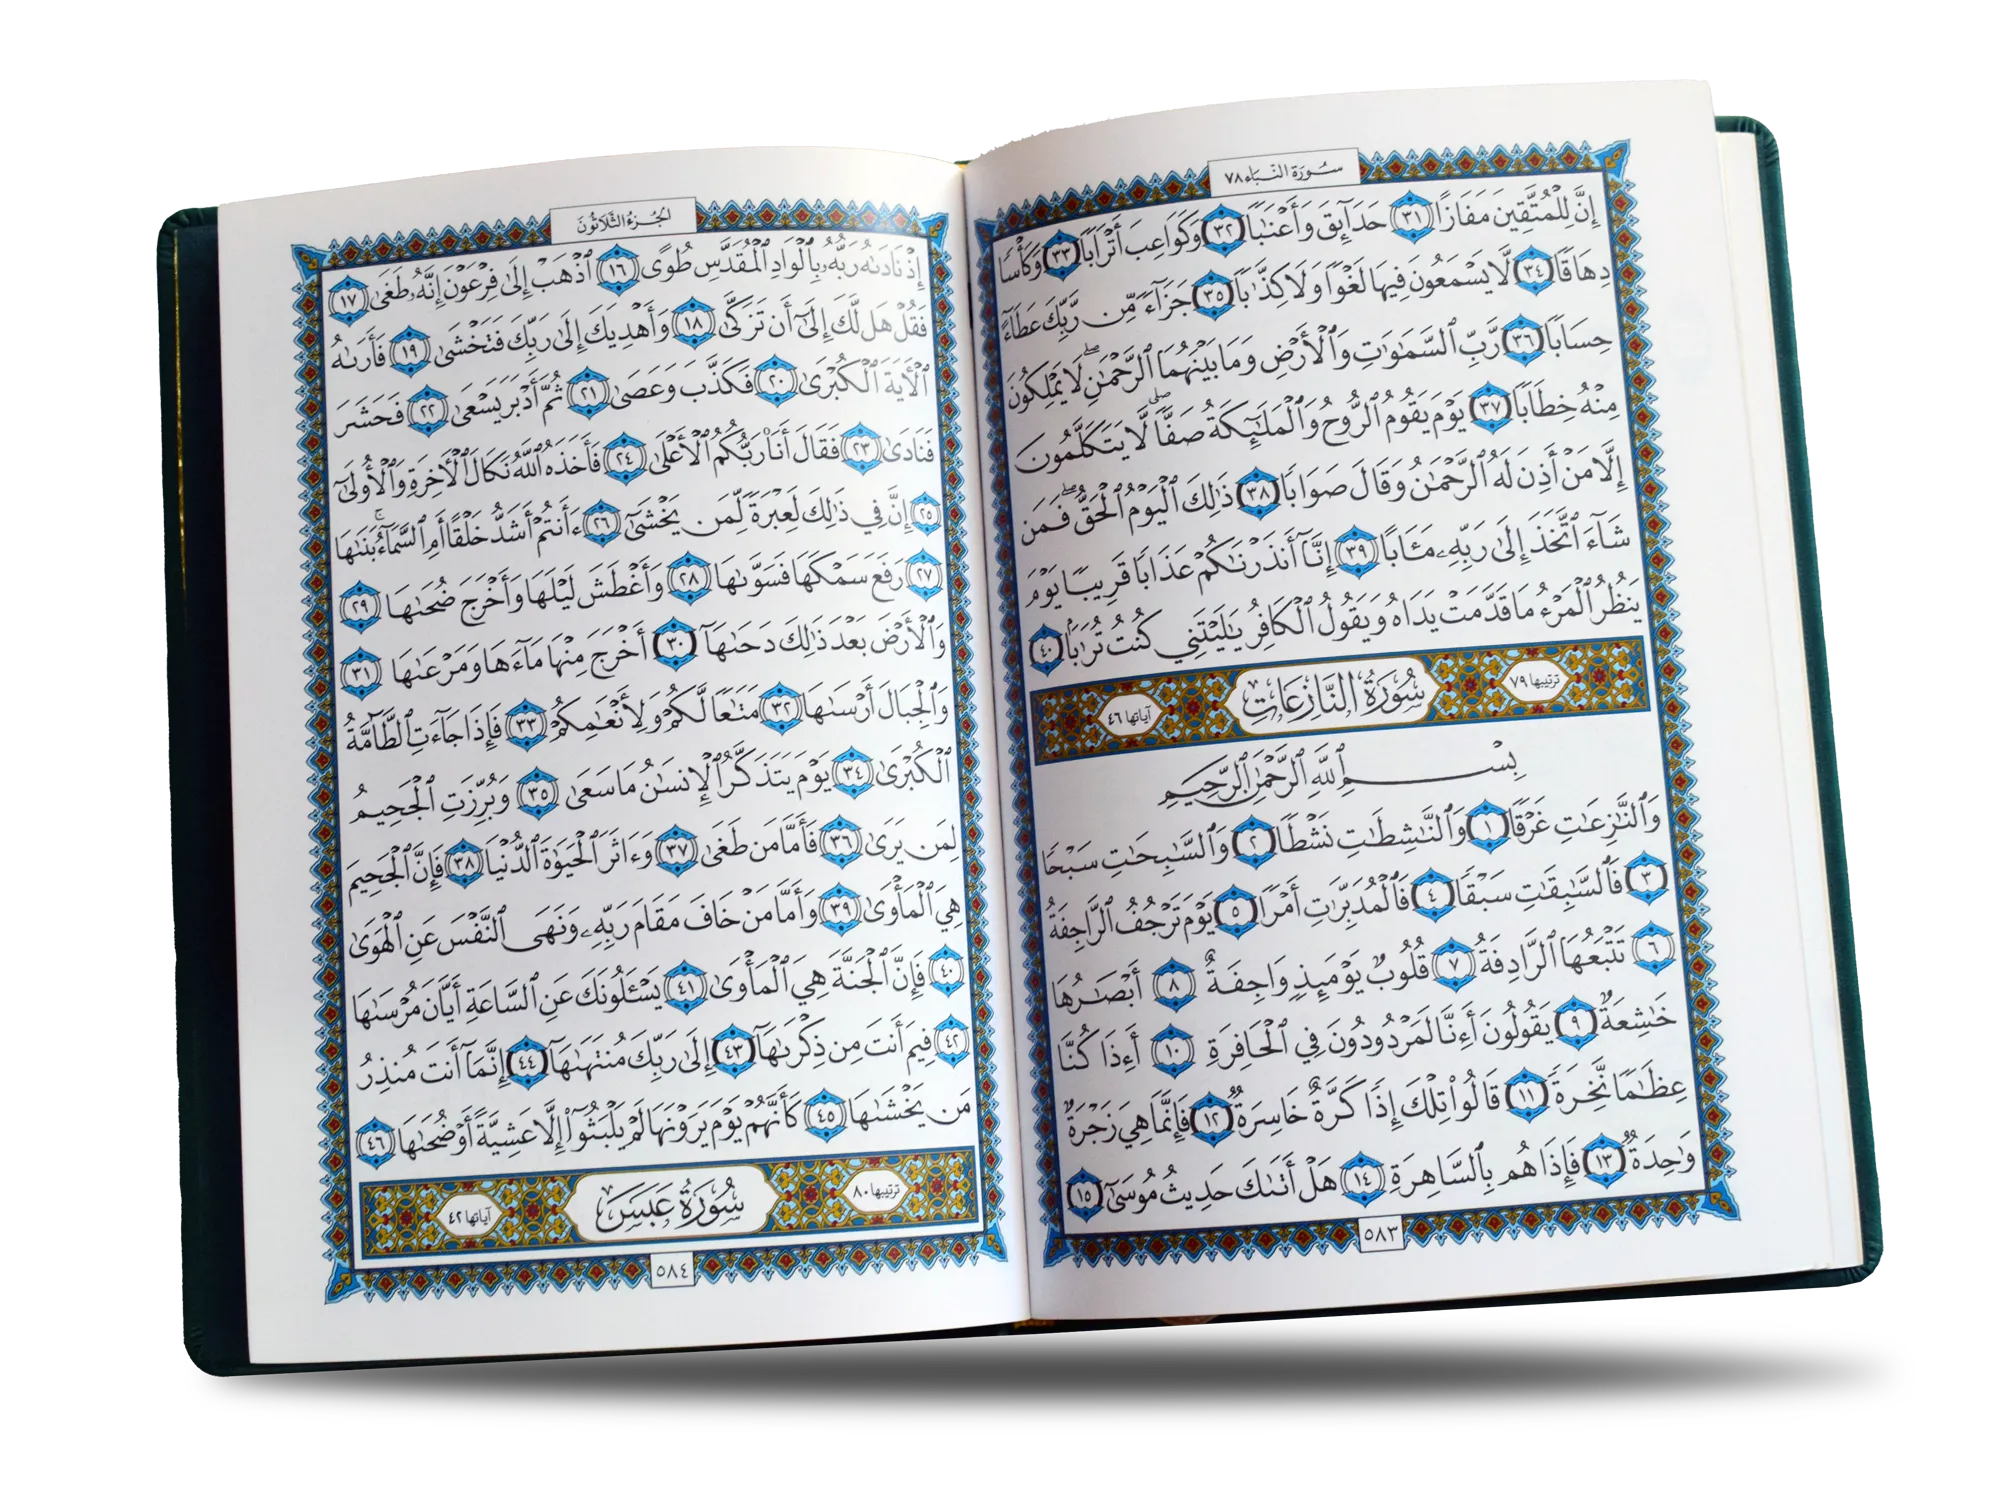 سُورَة النَّبَإِ ٧٨
إِنَّ لِلْمُتَّقِينَ مَفَازًا ٣١ حَدَآئِقَ وَأَعْنَٰبًا ٣٢ وَكَوَاعِبَ أَتْرَابًا ٣٣ وَكَأْسًا
دِهَاقًا ٣٤ لَّا يَسْمَعُونَ فِيهَا لَغْوًا وَلَا كِذَّٰبًا ٣٥ جَزَآءً مِّن رَّبِّكَ عَطَآءً
حِسَابًا ٣٦ رَّبِّ ٱلسَّمَٰوَٰتِ وَٱلْأَرْضِ وَمَا بَيْنَهُمَا ٱلرَّحْمَٰنِۖ لَا يَمْلِكُونَ
مِنْهُ خِطَابًا ٣٧ يَوْمَ يَقُومُ ٱلرُّوحُ وَٱلْمَلَٰٓئِكَةُ صَفًّاۖ لَّا يَتَكَلَّمُونَ
إِلَّا مَنْ أَذِنَ لَهُ ٱلرَّحْمَٰنُ وَقَالَ صَوَابًا ٣٨ ذَٰلِكَ ٱلْيَوْمُ ٱلْحَقُّۖ فَمَن
شَآءَ ٱتَّخَذَ إِلَىٰ رَبِّهِۦ مَـَٔابًا ٣٩ إِنَّآ أَنذَرْنَٰكُمْ عَذَابًا قَرِيبًا يَوْمَ
يَنظُرُ ٱلْمَرْءُ مَا قَدَّمَتْ يَدَاهُ وَيَقُولُ ٱلْكَافِرُ يَٰلَيْتَنِي كُنتُ تُرَٰبًۢا ٤٠
ترتيبها ٧٩ سُورَةُ النَّازِعَاتِ آياتها ٤٦
بِسْمِ ٱللَّهِ ٱلرَّحْمَٰنِ ٱلرَّحِيمِ
وَٱلنَّٰزِعَٰتِ غَرْقًا ١ وَٱلنَّٰشِطَٰتِ نَشْطًا ٢ وَٱلسَّٰبِحَٰتِ سَبْحًا
٣ فَٱلسَّٰبِقَٰتِ سَبْقًا ٤ فَٱلْمُدَبِّرَٰتِ أَمْرًا ٥ يَوْمَ تَرْجُفُ ٱلرَّاجِفَةُ
٦ تَتْبَعُهَا ٱلرَّادِفَةُ ٧ قُلُوبٌ يَوْمَئِذٍ وَاجِفَةٌ ٨ أَبْصَٰرُهَا
خَٰشِعَةٌ ٩ يَقُولُونَ أَءِنَّا لَمَرْدُودُونَ فِي ٱلْحَافِرَةِ ١٠ أَءِذَا كُنَّا
عِظَٰمًا نَّخِرَةً ١١ قَالُوا۟ تِلْكَ إِذًا كَرَّةٌ خَاسِرَةٌ ١٢ فَإِنَّمَا هِيَ زَجْرَةٌ
وَٰحِدَةٌ ١٣ فَإِذَا هُم بِٱلسَّاهِرَةِ ١٤ هَلْ أَتَىٰكَ حَدِيثُ مُوسَىٰٓ ١٥
٥٨٣
الجُزءُ الثَّلَاثُونَ
إِذْ نَادَىٰهُ رَبُّهُۥ بِٱلْوَادِ ٱلْمُقَدَّسِ طُوًى ١٦ ٱذْهَبْ إِلَىٰ فِرْعَوْنَ إِنَّهُۥ طَغَىٰ ١٧
فَقُلْ هَل لَّكَ إِلَىٰٓ أَن تَزَكَّىٰ ١٨ وَأَهْدِيَكَ إِلَىٰ رَبِّكَ فَتَخْشَىٰ ١٩ فَأَرَىٰهُ
ٱلْءَايَةَ ٱلْكُبْرَىٰ ٢٠ فَكَذَّبَ وَعَصَىٰ ٢١ ثُمَّ أَدْبَرَ يَسْعَىٰ ٢٢ فَحَشَرَ
فَنَادَىٰ ٢٣ فَقَالَ أَنَا۠ رَبُّكُمُ ٱلْأَعْلَىٰ ٢٤ فَأَخَذَهُ ٱللَّهُ نَكَالَ ٱلْءَاخِرَةِ وَٱلْأُولَىٰٓ
٢٥ إِنَّ فِي ذَٰلِكَ لَعِبْرَةً لِّمَن يَخْشَىٰٓ ٢٦ ءَأَنتُمْ أَشَدُّ خَلْقًا أَمِ ٱلسَّمَآءُۚ بَنَىٰهَا
٢٧ رَفَعَ سَمْكَهَا فَسَوَّىٰهَا ٢٨ وَأَغْطَشَ لَيْلَهَا وَأَخْرَجَ ضُحَىٰهَا ٢٩
وَٱلْأَرْضَ بَعْدَ ذَٰلِكَ دَحَىٰهَآ ٣٠ أَخْرَجَ مِنْهَا مَآءَهَا وَمَرْعَىٰهَا ٣١
وَٱلْجِبَالَ أَرْسَىٰهَا ٣٢ مَتَٰعًا لَّكُمْ وَلِأَنْعَٰمِكُمْ ٣٣ فَإِذَا جَآءَتِ ٱلطَّآمَّةُ
ٱلْكُبْرَىٰ ٣٤ يَوْمَ يَتَذَكَّرُ ٱلْإِنسَٰنُ مَا سَعَىٰ ٣٥ وَبُرِّزَتِ ٱلْجَحِيمُ
لِمَن يَرَىٰ ٣٦ فَأَمَّا مَن طَغَىٰ ٣٧ وَءَاثَرَ ٱلْحَيَوٰةَ ٱلدُّنْيَا ٣٨ فَإِنَّ ٱلْجَحِيمَ
هِيَ ٱلْمَأْوَىٰ ٣٩ وَأَمَّا مَنْ خَافَ مَقَامَ رَبِّهِۦ وَنَهَى ٱلنَّفْسَ عَنِ ٱلْهَوَىٰ
٤٠ فَإِنَّ ٱلْجَنَّةَ هِيَ ٱلْمَأْوَىٰ ٤١ يَسْـَٔلُونَكَ عَنِ ٱلسَّاعَةِ أَيَّانَ مُرْسَىٰهَا
٤٢ فِيمَ أَنتَ مِن ذِكْرَىٰهَآ ٤٣ إِلَىٰ رَبِّكَ مُنتَهَىٰهَآ ٤٤ إِنَّمَآ أَنتَ مُنذِرُ
مَن يَخْشَىٰهَا ٤٥ كَأَنَّهُمْ يَوْمَ يَرَوْنَهَا لَمْ يَلْبَثُوٓا۟ إِلَّا عَشِيَّةً أَوْ ضُحَىٰهَا ٤٦
ترتيبها ٨٠ سُورَةُ عَبَسَ آياتها ٤٢
٥٨٤